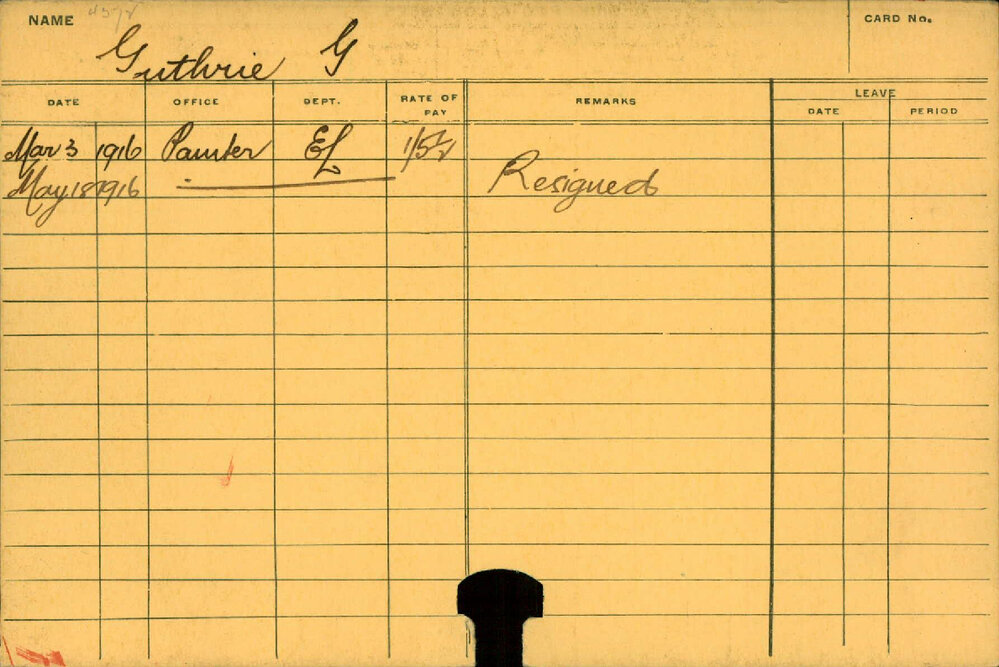 NAME
CARD No.
Guthrie G
DATE OFFICE DEPT. RATE OF PAY REMARKS LEAVE
DATE PERIOD
Mar 3 1916 Painter EL 1/5½
May 18 1916 Resigned